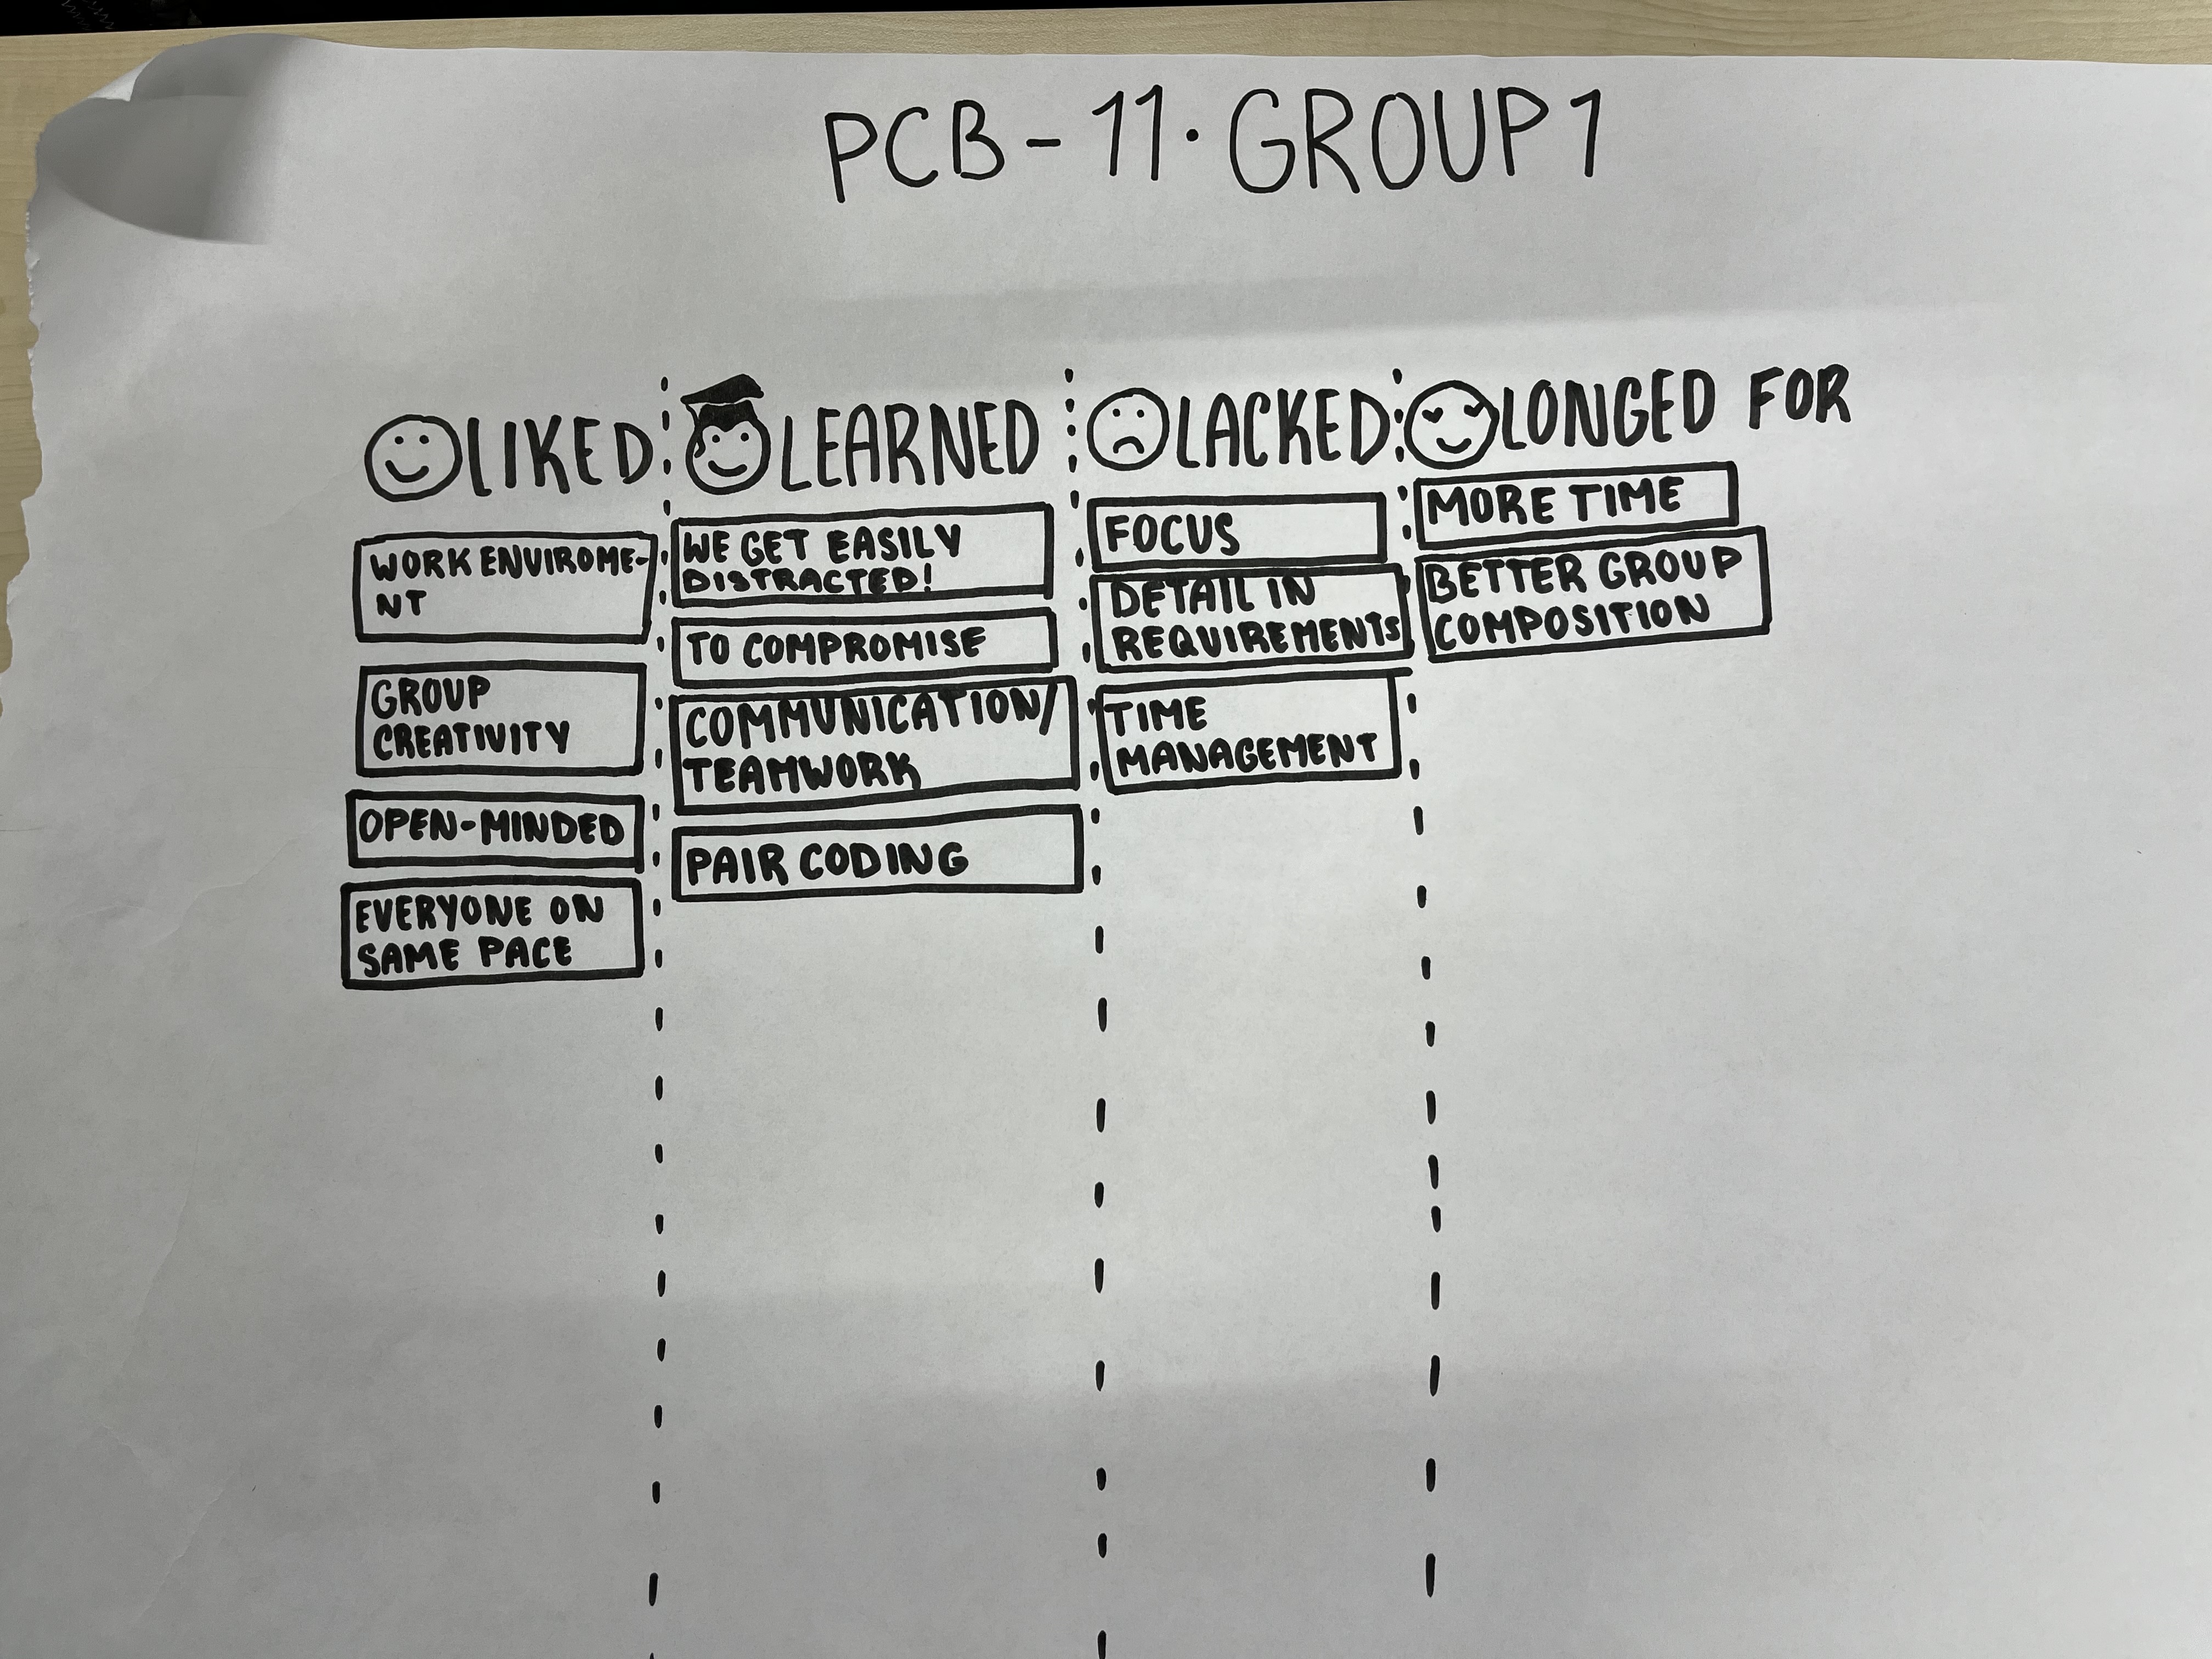 PCB-11·GROUP 1
LIKED
WORK ENVIROME-
NT
GROUP
CREATIVITY
OPEN-MINDED
EVERYONE ON
SAME PACE
LEARNED
WE GET EASILY
DISTRACTED!
TO COMPROMISE
COMMUNICATION/
TEAMWORK
PAIR CODING
LACKED
FOCUS
DETAIL IN
REQUIREMENTS
TIME
MANAGEMENT
LONGED FOR
MORE TIME
BETTER GROUP
COMPOSITION